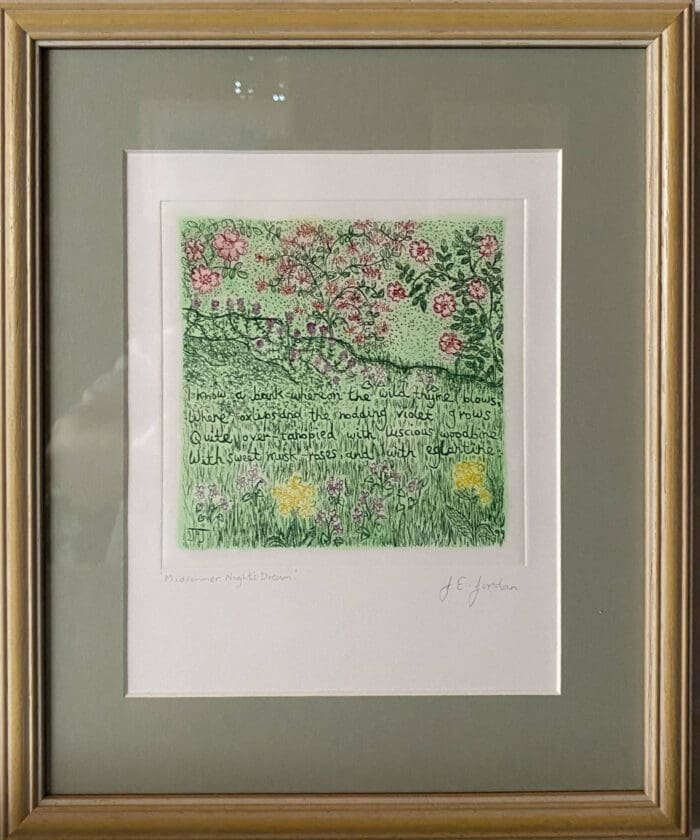 I know a bank whereon the wild thyme blows,
Where oxlips and the nodding violet grows
Quite over-canopied with luscious woodbine
With sweet musk-roses, and with eglantine:
'Midsummer Night's Dream'
J.E. Jordan